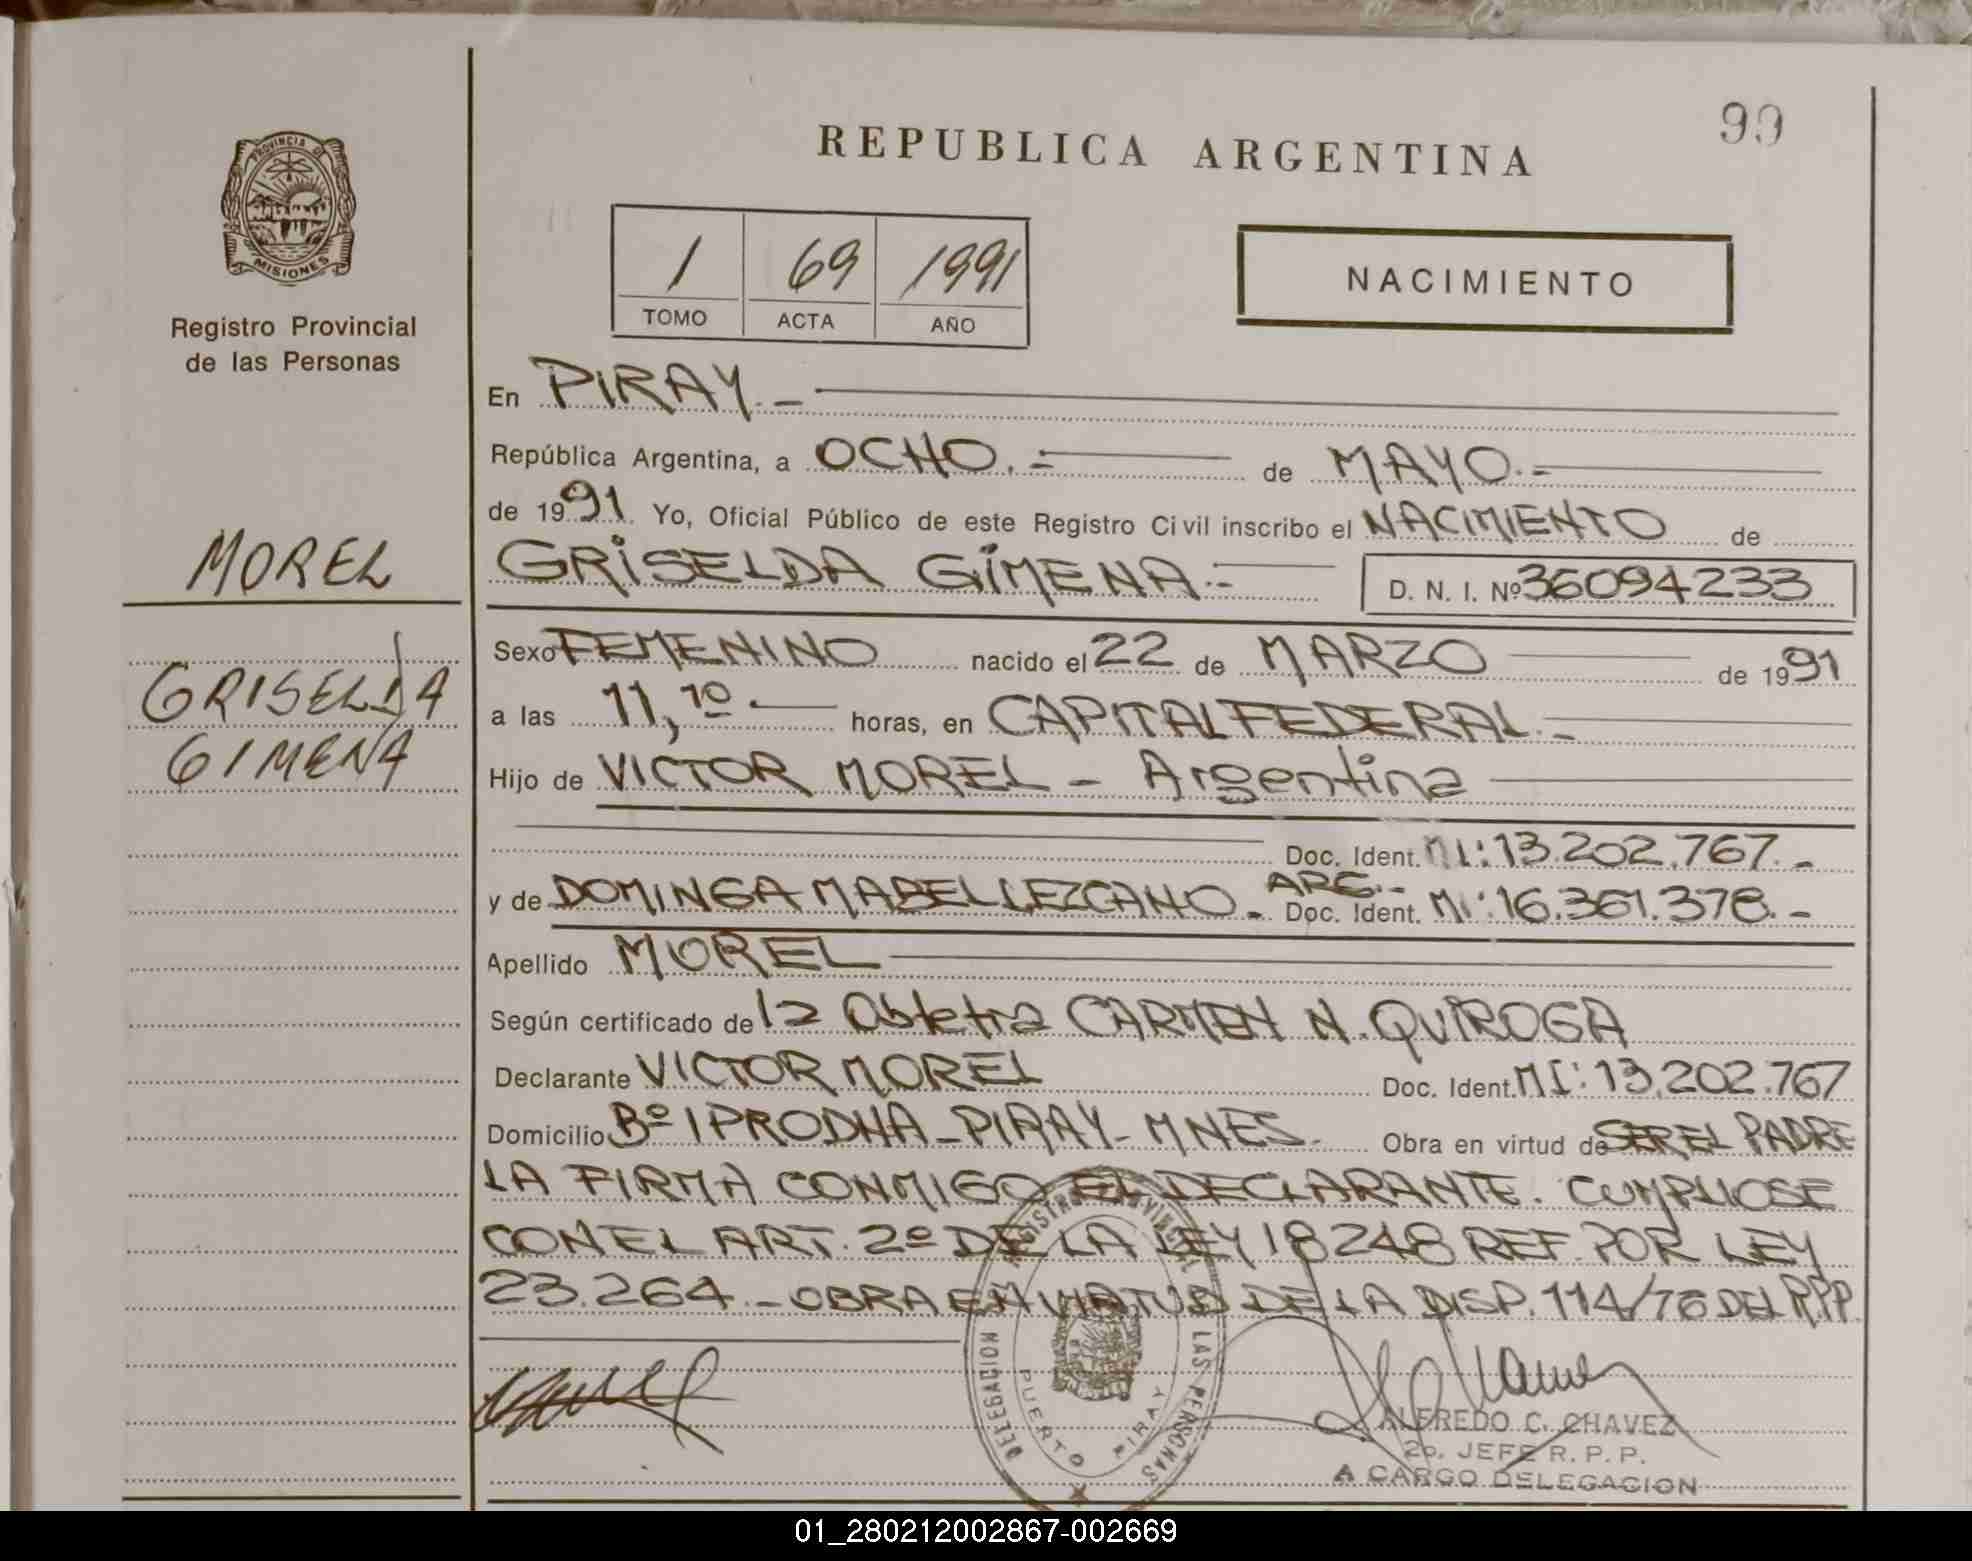 99
REPUBLICA ARGENTINA
PROVINCIA DE
MISIONES
Registro Provincial
de las Personas
1 69 1991
TOMO ACTA AÑO
NACIMIENTO
En PIRAY.-
República Argentina, a OCHO.- de MAYO.-
de 1991 Yo, Oficial Público de este Registro Civil inscribo el NACIMIENTO de
MOREL
GRISELDA GIMENA.- D. N. I. Nº 36094233
GRISELDA
GIMENA
Sexo FEMENINO nacido el 22 de MARZO de 1991
a las 11,10 horas, en CAPITAL FEDERAL.-
Hijo de VICTOR MOREL - Argentina
Doc. Ident. MI: 13.202.767.-
y de DOMINGA MABEL LEZCANO.- ARG.- Doc. Ident. MI: 16.361.378.-
Apellido MOREL
Según certificado de la Obtetra CARMEN N. QUIROGA
Declarante VICTOR MOREL Doc. Ident. MI: 13.202.767
Domicilio Bº IPRODHA - PIRAY - MNES. Obra en virtud de SER EL PADRE
LA FIRMA CONMIGO EL DECLARANTE. CUMPLIOSE
CON EL ART. 2º DE LA LEY 18248 REF. POR LEY
23.264.- OBRA EN VIRTUD DE LA DISP. 114/76 DEL R.P.P.
DELEGACION REGISTRO PROVINCIAL DE LAS PERSONAS
PUERTO PIRAY
ALFREDO C. CHAVEZ
2o. JEFE R. P. P.
A CARGO DELEGACION
01_280212002867-002669